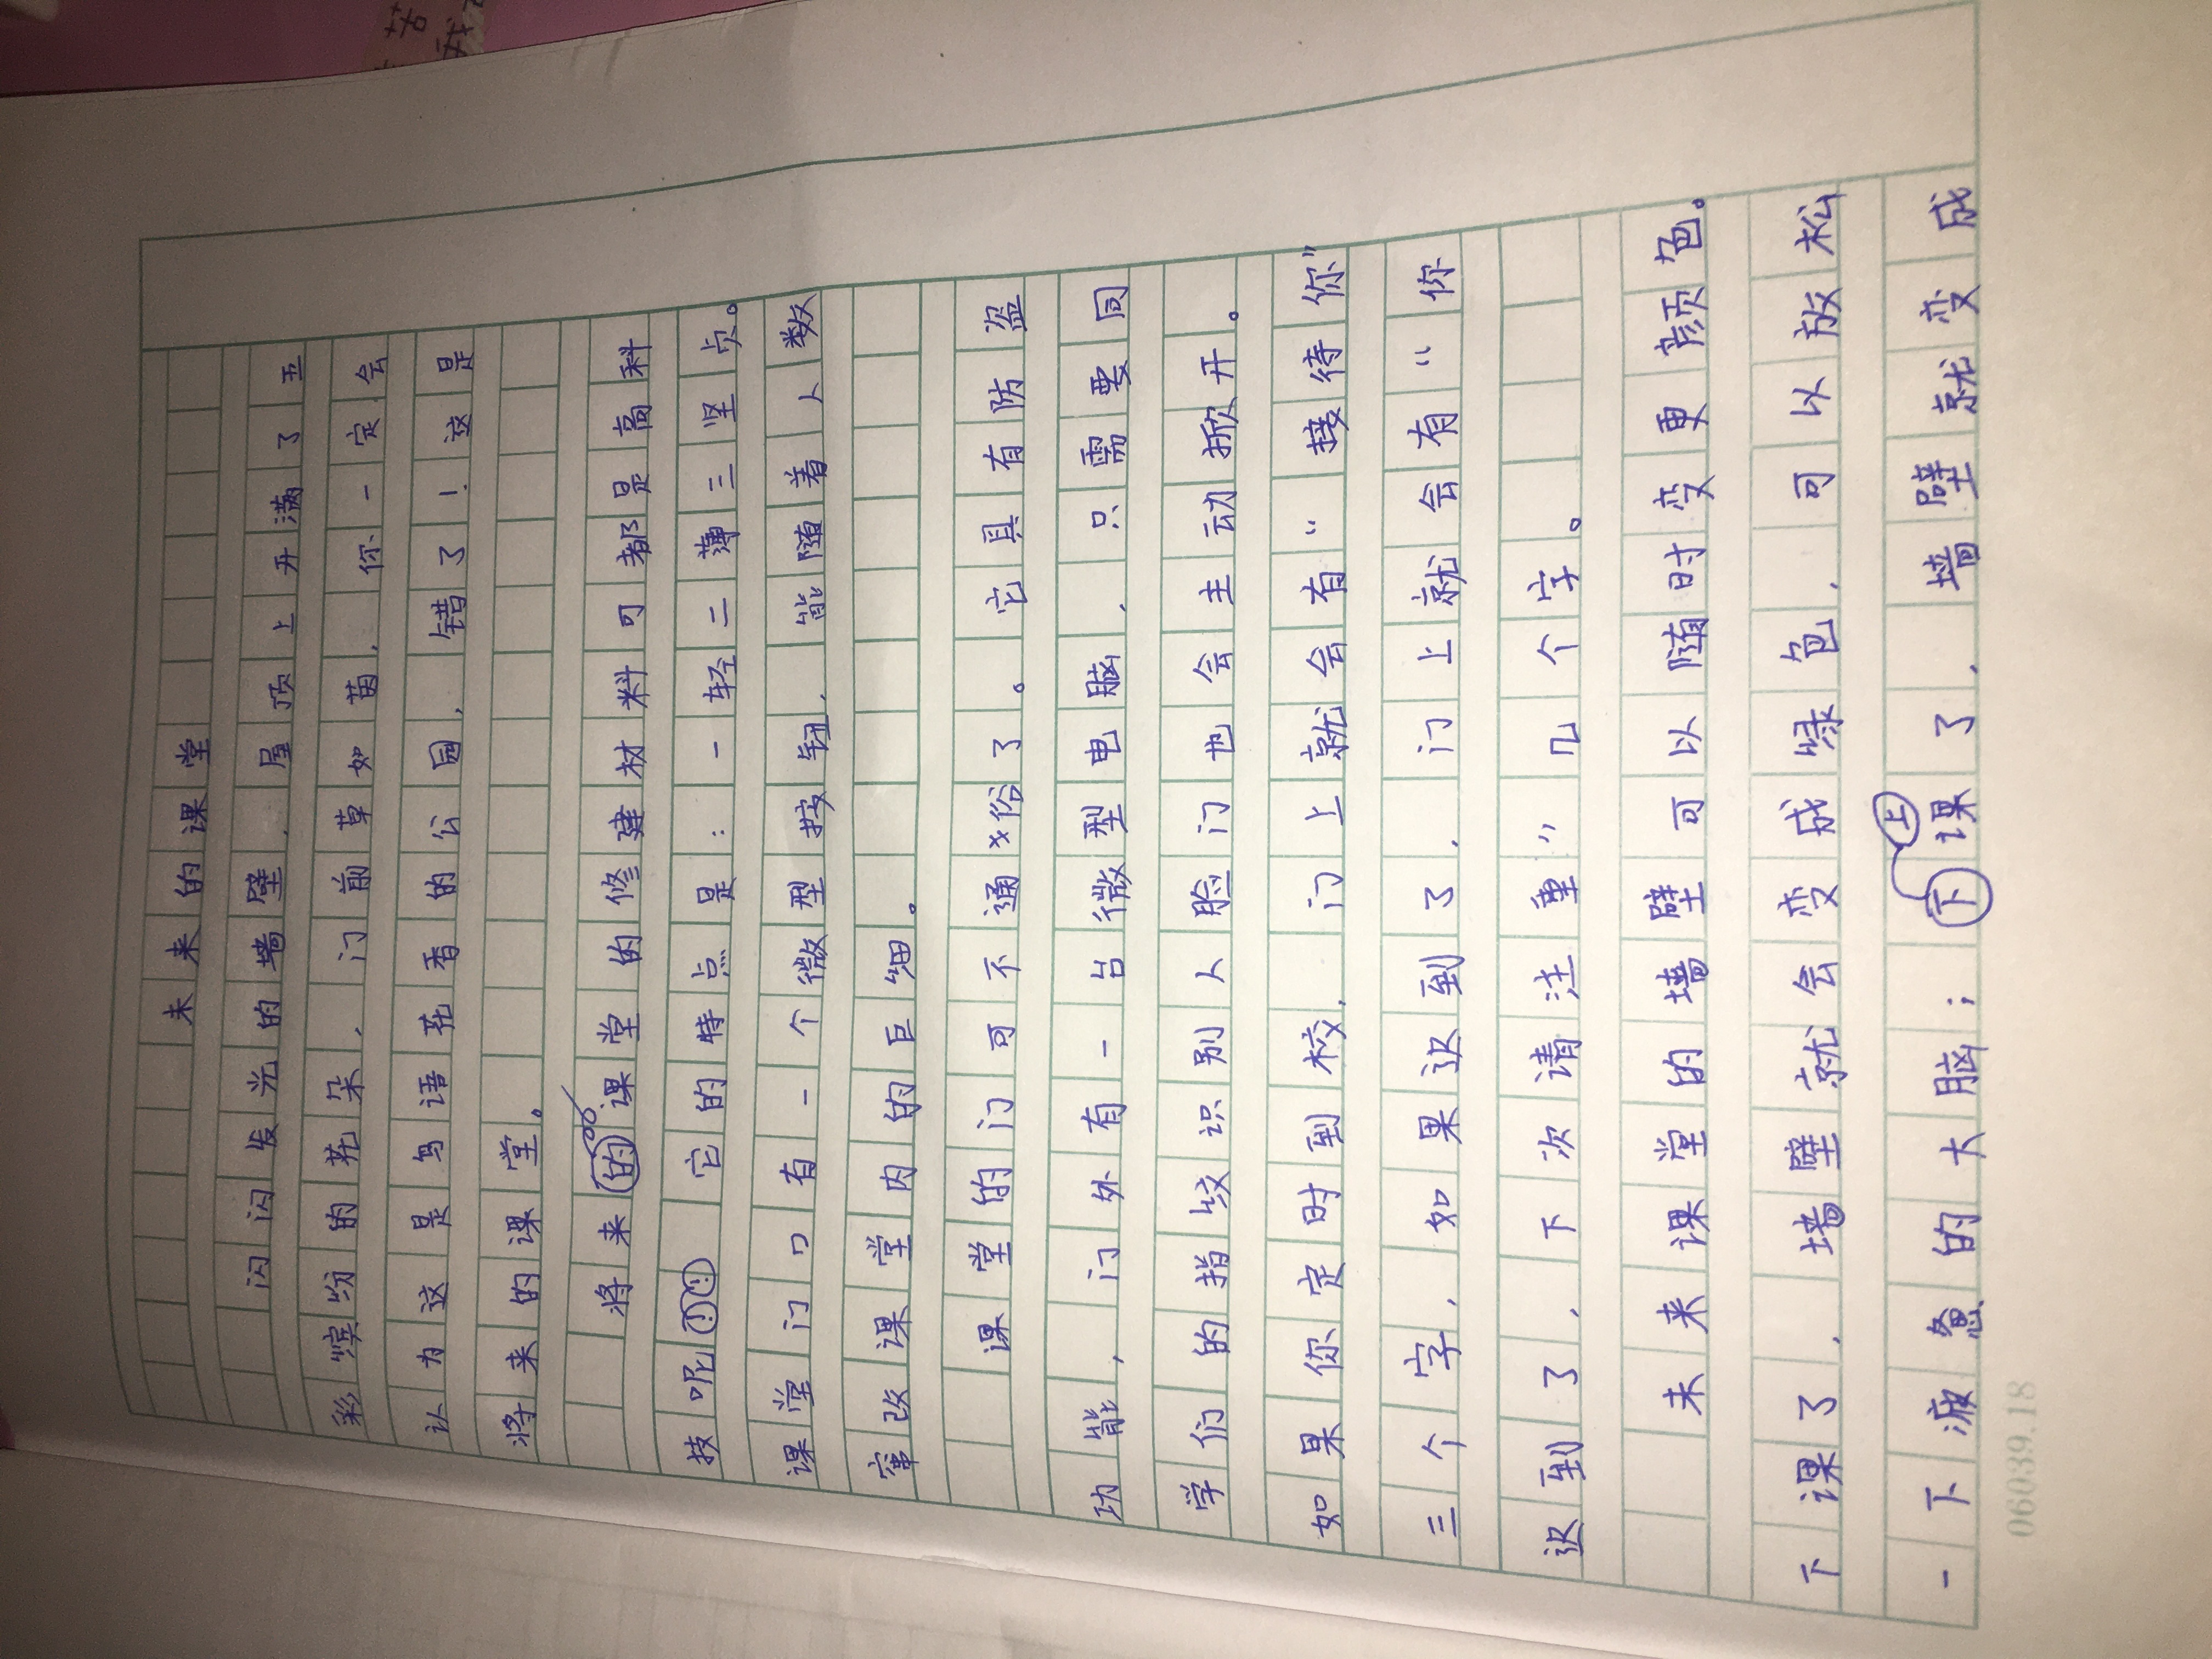 未来的课堂
闪闪发光的墙壁，屋顶上开满了五
彩缤纷的花朵，门前草如茵，你一定会
认为这是鸟语花香的公园，错了！这是
将来的课堂。
将来的课堂的修建材料可都是高科
技呢！它的特点是：一轻二薄三坚贞。
课堂门口有一个微型按钮，能随着人数
窜改课堂内的巨细。
课堂的门可不通俗了。它具有防盗
功能，门外有一台微型电脑，只需要同
学们的指纹识别人脸门也会主动掀开。
如果你定时到校，门上就会有“接待你”
三个字，如果迟到了，门上就会有“你
迟到了，下次请注重”几个字。
未来课堂的墙壁可以随时变更颜色。
下课了，墙壁就会变成绿色，可以放松
一下疲惫的大脑；上课了，墙壁就变成
06039.18